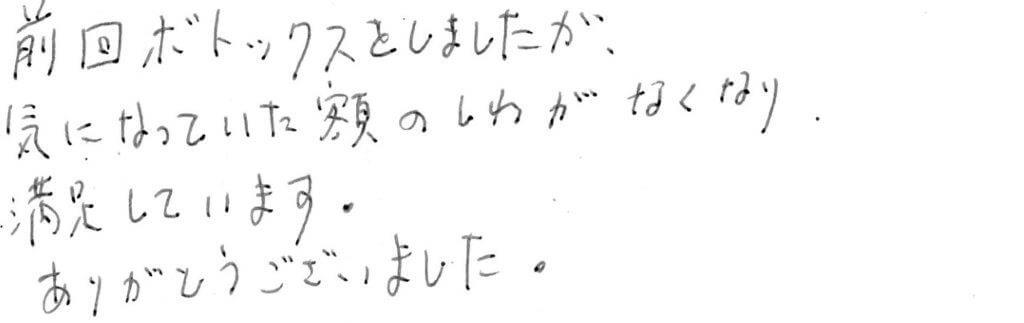 前回ボトックスをしましたが、
気になっていた額のしわがなくなり、
満足しています。
ありがとうございました。